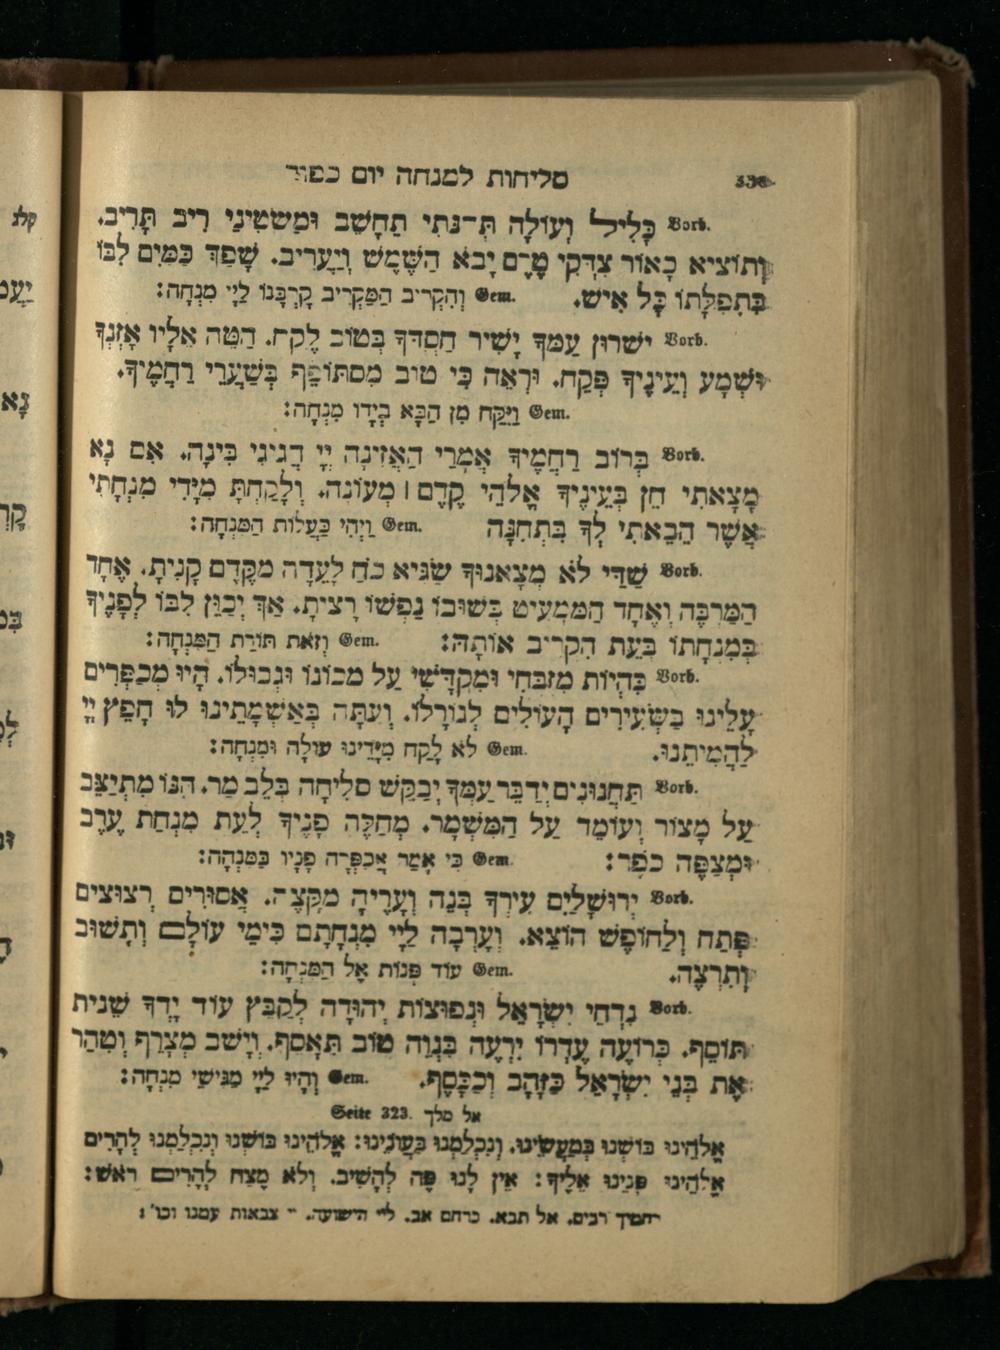 סליחות למנחה יום כפור
Vorb. כָּלִיל וְעוֹלָה תְּ־נּתי תַחְשֵׁב וּמַשְׂטִינַי רִיב תָּרִיב.
וְתוֹצִיא כָאוֹר צִדְקִי טֶרֶם יָבֹא הַשֶּׁמֶשׁ וְיַעֲרִיב. שָׁפַךְ כַּמַּיִם לִבּוֹ
בִּתְפִלָּתוֹ כָּל אִישׁ. Gem. וְהִקְרִיב הַמַּקְרִיב קָרְבָּנוֹ לַיְיָ מִנְחָה:
Vorb. יְשֻׁרוּן עַמְּךָ יָשִׁיר חַסְדְּךָ בְּטוּב לֶקַח. הַטֵּה אֵלָיו אָזְנְךָ
וּשְׁמָע וְעֵינֶיךָ פְּקַח. וּרְאֵה כִּי טוֹב מִסְתּוֹפֵף בְּשַׁעֲרֵי רַחֲמֶיךָ.
Gem. וַיִּקַּח מִן הַבָּא בְיָדוֹ מִנְחָה:
Vorb. בְּרוֹב רַחֲמֶיךָ אֲמָרַי הַאֲזִינָה יְיָ הֲגִיגִי בִּינָה. אִם נָא
מָצָאתִי חֵן בְּעֵינֶיךָ אֱלֹהֵי קֶדֶם ׀ מְעוֹנָה. וְלָקַחְתָּ מִיָּדִי מִנְחָתִי
אֲשֶׁר הֵבֵאתִי לְךָ בִּתְחִנָּה Gem. וַיְהִי כַּעֲלוֹת הַמִּנְחָה:
Vorb. שַׁדַּי לֹא מְצָאנוּךָ שַׂגִּיא כֹחַ לָעֵדָה מִקֶּדֶם קָנִיתָ. אֶחָד
הַמַּרְבֶּה וְאֶחָד הַמַּמְעִיט בְּשׁוּבוֹ נַפְשׁוֹ רָצִיתָ. אַךְ יְכַוֵּן לִבּוֹ לְפָנֶיךָ
בְּמִנְחָתוֹ בְּעֵת הִקְרִיב אוֹתָהּ: Gem. וְזֹאת תּוֹרַת הַמִּנְחָה:
Vorb. בִּהְיוֹת מִזְבְּחִי וּמִקְדָּשִׁי עַל מְכוֹנוֹ וּגְבוּלוֹ. הָיוּ מְכַפְּרִים
עָלֵינוּ בַּשְּׂעִירִים הָעוֹלִים לְגוֹרָלוֹ. וְעַתָּה בְּאַשְׁמָתֵינוּ לוּ חָפֵץ יְיָ
לַהֲמִיתֵנוּ. Gem. לֹא לָקַח מִיָּדֵינוּ עוֹלָה וּמִנְחָה:
Vorb. תַּחֲנוּנִים יְדַבֵּר עַמְּךָ יְבַקֵּשׁ סְלִיחָה בְּלֵב מַר. הִנּוֹ מִתְיַצֵּב
עַל מָצוֹר וְעוֹמֵד עַל הַמִּשְׁמָר. מְחַלֶּה פָנֶיךָ לְעֵת מִנְחַת עֶרֶב
וּמְצַפֶּה כֹפֶר: Gem. כִּי אָמַר אֲכַפְּרָה פָנָיו בַּמִּנְחָה:
Vorb. יְרוּשָׁלַיִם עִירְךָ בְּנֵה וְעָרֶיהָ מִקָּצֶה. אֲסוּרִים רְצוּצִים
פְּתַח וְלַחוֹפֶשׁ הוֹצֵא. וְעָרְבָה לַיְיָ מִנְחָתָם כִּימֵי עוֹלָם וְתָשׁוּב
וְתִרְצֶה. Gem. עוֹד פְּנוֹת אֶל הַמִּנְחָה:
Vorb. נִדְחֵי יִשְׂרָאֵל וּנְפוּצוֹת יְהוּדָה לְקַבֵּץ עוֹד יָדְךָ שֵׁנִית
תּוֹסֵף. כְּרוֹעֶה עֶדְרוֹ יִרְעֶה בִּנְוֵה טוֹב תֵּאָסֵף. וְיָשַׁב מְצָרֵף וְטִהַר
אֶת בְּנֵי יִשְׂרָאֵל כַּזָּהָב וְכַכָּסֶף. Gem. וְהָיוּ לַיְיָ מַגִּישֵׁי מִנְחָה:
אל מלך Seite 323.
אֱלֹהֵינוּ בּוֹשְׁנוּ בְּמַעֲשֵׂינוּ. וְנִכְלַמְנוּ בַּעֲוֹנֵינוּ: אֱלֹהֵינוּ בּוֹשְׁנוּ וְנִכְלַמְנוּ לְהָרִים
אֱלֹהֵינוּ פָּנֵינוּ אֵלֶיךָ: אֵין לָנוּ פֶּה לְהָשִׁיב. וְלֹא מֵצַח לְהָרִים רֹאשׁ:
רחמיך רבים. אל תבא. כרחם אב. לי״ הישועה. י״ צבאות עמנו וכו׳: